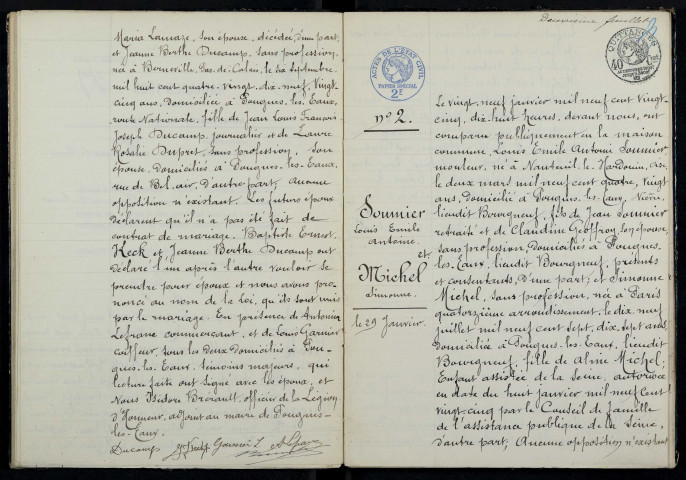 Maria Lamaze, son épouse, décédée, d'une part,
et Jeanne Berthe Ducamp, sans profession,
née à Berneville, Pas-de-Calais, le six septembre
mil huit cent quatre-vingt-dix-neuf, vingt-
cinq ans, domiciliée à Pougues-les-Eaux,
route Nationale, fille de Jean Louis François
Joseph Ducamp, journalier et de Laure
Rosalie Dupret, sans profession, son
épouse, domiciliés à Pougues-les-Eaux,
rue de Bel-air, d'autre part, Aucune
opposition n'existant. Les futurs époux
déclarent qu'il n'a pas été fait de
contrat de mariage. Baptiste Ernest
Keck et Jeanne Berthe Ducamp ont
déclaré l'un après l'autre vouloir se
prendre pour époux et nous avons pro-
noncé au nom de la Loi, qu'ils sont unis
par le mariage. En présence de Antonin
Lefranc commerçant, et de Louis Garnier
coiffeur, tous les deux domiciliés à Pou-
gues-les-Eaux, témoins majeurs, qui
lecture faite ont signé avec les époux, et
Nous Isidore Brérault, officier de la Légion
d'Honneur, adjoint au maire de Pougues-
les-Eaux.
Ducamp
Deuxième feuillet
ACTES DE L'ETAT CIVIL
PAPIER SPECIAL
2F
QUITTANCES
40
n° 2.
Sounier
Louis Emile
Antoine.
et
Michel
Simonne.
le 29 Janvier.
Le vingt-neuf janvier mil neuf cent vingt-
cinq, dix-huit heures, devant nous, ont
comparu publiquement en la maison
commune, Louis Emile Antoine Sounier
mouleur, né à Nanteuil-le-Haudouin, Oise,
le deux mars mil neuf cent quatre, vingt
ans, domicilié à Pougues-les-Eaux, Nièvre,
lieudit Bourgneuf, fils de Jean Sounier
retraité et de Claudine Geoffroy, son épouse,
sans profession, domiciliés à Pougues-
les-Eaux, lieudit Bourgneuf, présents
et consentants, d'une part; et Simonne
Michel, sans profession, née à Paris
quatorzième arrondissement, le dix-neuf
juillet mil neuf cent sept, dix-sept ans,
domiciliée à Pougues-les-Eaux, lieudit
Bourgneuf, fille de Michel,
Enfant assistée de la Seine, autorisée
en date du huit janvier mil neuf cent
vingt-cinq par le Conseil de famille
de l'assistance publique de la Seine,
d'autre part, Aucune opposition n'existant